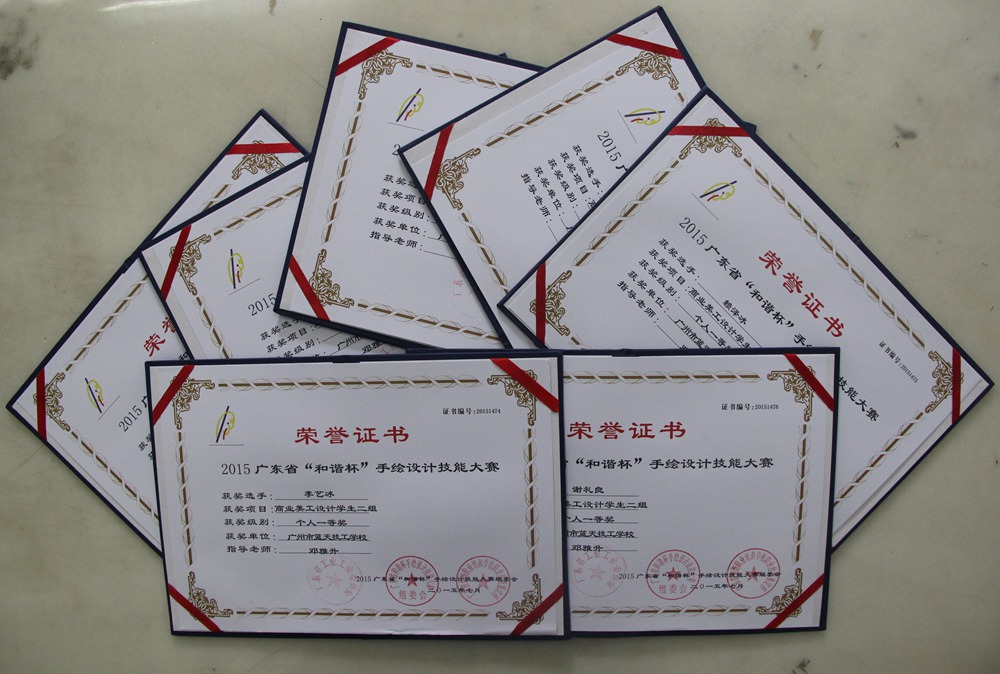 证书编号:20151474
荣誉证书
2015广东省“和谐杯”手绘设计技能大赛
获奖选手：李艺冰
获奖项目：商业美工设计学生二组
获奖级别：个人一等奖
获奖单位：广州市蓝天技工学校
指导老师：邓雅升
2015广东省“和谐杯”手绘设计技能大赛组委会
二〇一五年七月
组委会
证书编号:20151476
荣誉证书
“和谐杯”手绘设计技能大赛
谢礼良
美工设计学生二组
个人一等奖
市蓝天技工学校
邓雅升
2015广东省“和谐杯”手绘设计技能大赛组委会
二〇一五年七月
组委会
证书编号:20151475
荣誉证书
2015广东省“和谐杯”手
技能大赛
获奖选手：赖泽冰
获奖项目：商业美工设计学生
获奖级别：个人一等
获奖单位：广州市蓝
指导老师：
2015
获奖选手：
获奖项目：
获奖级别：
获奖单位：
指导老师：
获奖项目
获奖级别：
获奖单位：
指导老师：
2015
获奖
荣
2015